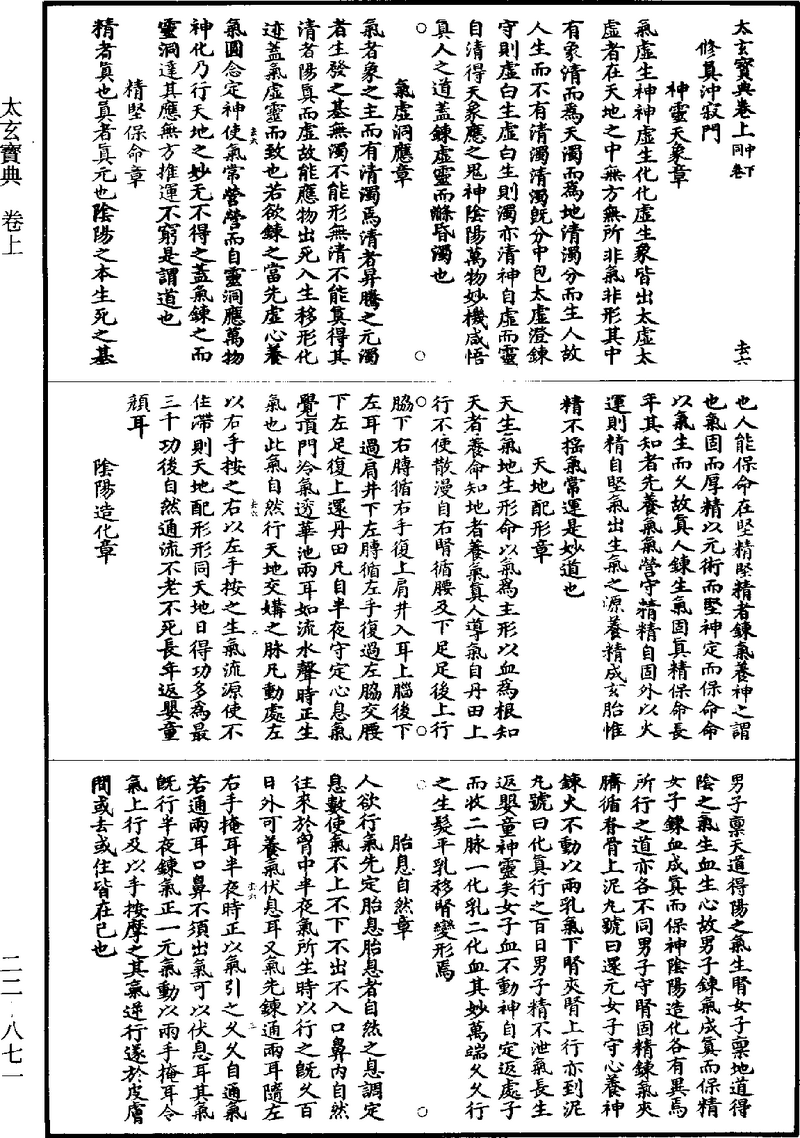 太玄寶典卷上同卷中下
去六
修真沖寂門
神靈天象章
氣虛生神神虛生化化虛生象皆出太虛太
虛者在天地之中無方無所非氣非形其中
有象清而為天濁而為地清濁分而生人故
人生而不有清濁清濁既分中包太虛澄鍊
守則虛白生虛白生則濁亦清神自虛而靈
自清得天象應之鬼神陰陽萬物妙機咸悟
真人之道蓋鍊虛靈而滌昏濁也
氣虛洞應章
氣者象之主而有清濁焉清者昇騰之元濁
者生發之基無濁不能形無清不能真得其
清者陽真而虛故能應物出死入生移形化
迹蓋氣虛靈而致也若欲鍊之當先虛心養
氣圓念定神使氣常營營而自靈洞應萬物
神化乃行天地之妙无不得之蓋氣鍊之而
靈洞達其應無方推運不窮是謂道也
精堅保命章
精者真也真者真元也陰陽之本生死之基
也人能保命在堅精堅精者鍊氣養神之謂
也氣固而厚精以元術而堅神定而保命命
以氣生而久故真人鍊生氣固真精保命長
年其知者先養氣氣營守精精自固外以火
運則精自堅氣出生氣之源養精成玄胎惟
精不搖氣常運是妙道也
天地配形章
天生氣地生形命以氣為主形以血為根知
天者養命知地者養氣真人導氣自丹田上
行不使散漫自右腎循腰及下足足後上行
脇下右膊循右手復上肩井入耳上腦後下
左耳過肩井下左膊循左手復過左脇交腰
下左足復上還丹田凡自半夜守定心息氣
覺頂門冷氣透華池兩耳如流水聲時正生
氣也此氣自然行天地交媾之脉凡動處左
以右手按之右以左手按之生氣流源使不
住滯則天地配形形同天地日得功多為最
三千功後自然通流不老不死長年返嬰童
顏耳
陰陽造化章
男子禀天道得陽之氣生腎女子禀地道得
陰之氣生血生心故男子鍊氣成真而保精
女子鍊血成真而保神陰陽造化各有異焉
所行之道亦各不同男子守腎固精鍊氣夾
臍循脊骨上泥丸號曰還元女子守心養神
鍊火不動以兩乳氣下腎夾腎上行亦到泥
丸號曰化真行之百日男子精不泄氣長生
返嬰童神靈矣女子血不動神自定返處子
而收二脉一化乳二化血其妙萬端久久行
之生髮平乳移腎變形焉
胎息自然章
人欲行氣先定胎息胎息者自然之息調定
息數使氣不上不下不出不入口鼻內自然
往來於胷中半夜氣所生時以行之既久百
日外可養氣伏息耳又氣先鍊通兩耳隨左
右手掩耳半夜時正以氣引之久久自通氣
若通兩耳口鼻不須出氣可以伏息耳其氣
既行半夜鍊氣正一元氣動以兩手掩耳令
氣上行及以手按摩之其氣逆行遂於皮膚
間或去或住皆在己也
太玄寶典 卷上
二二·八七一